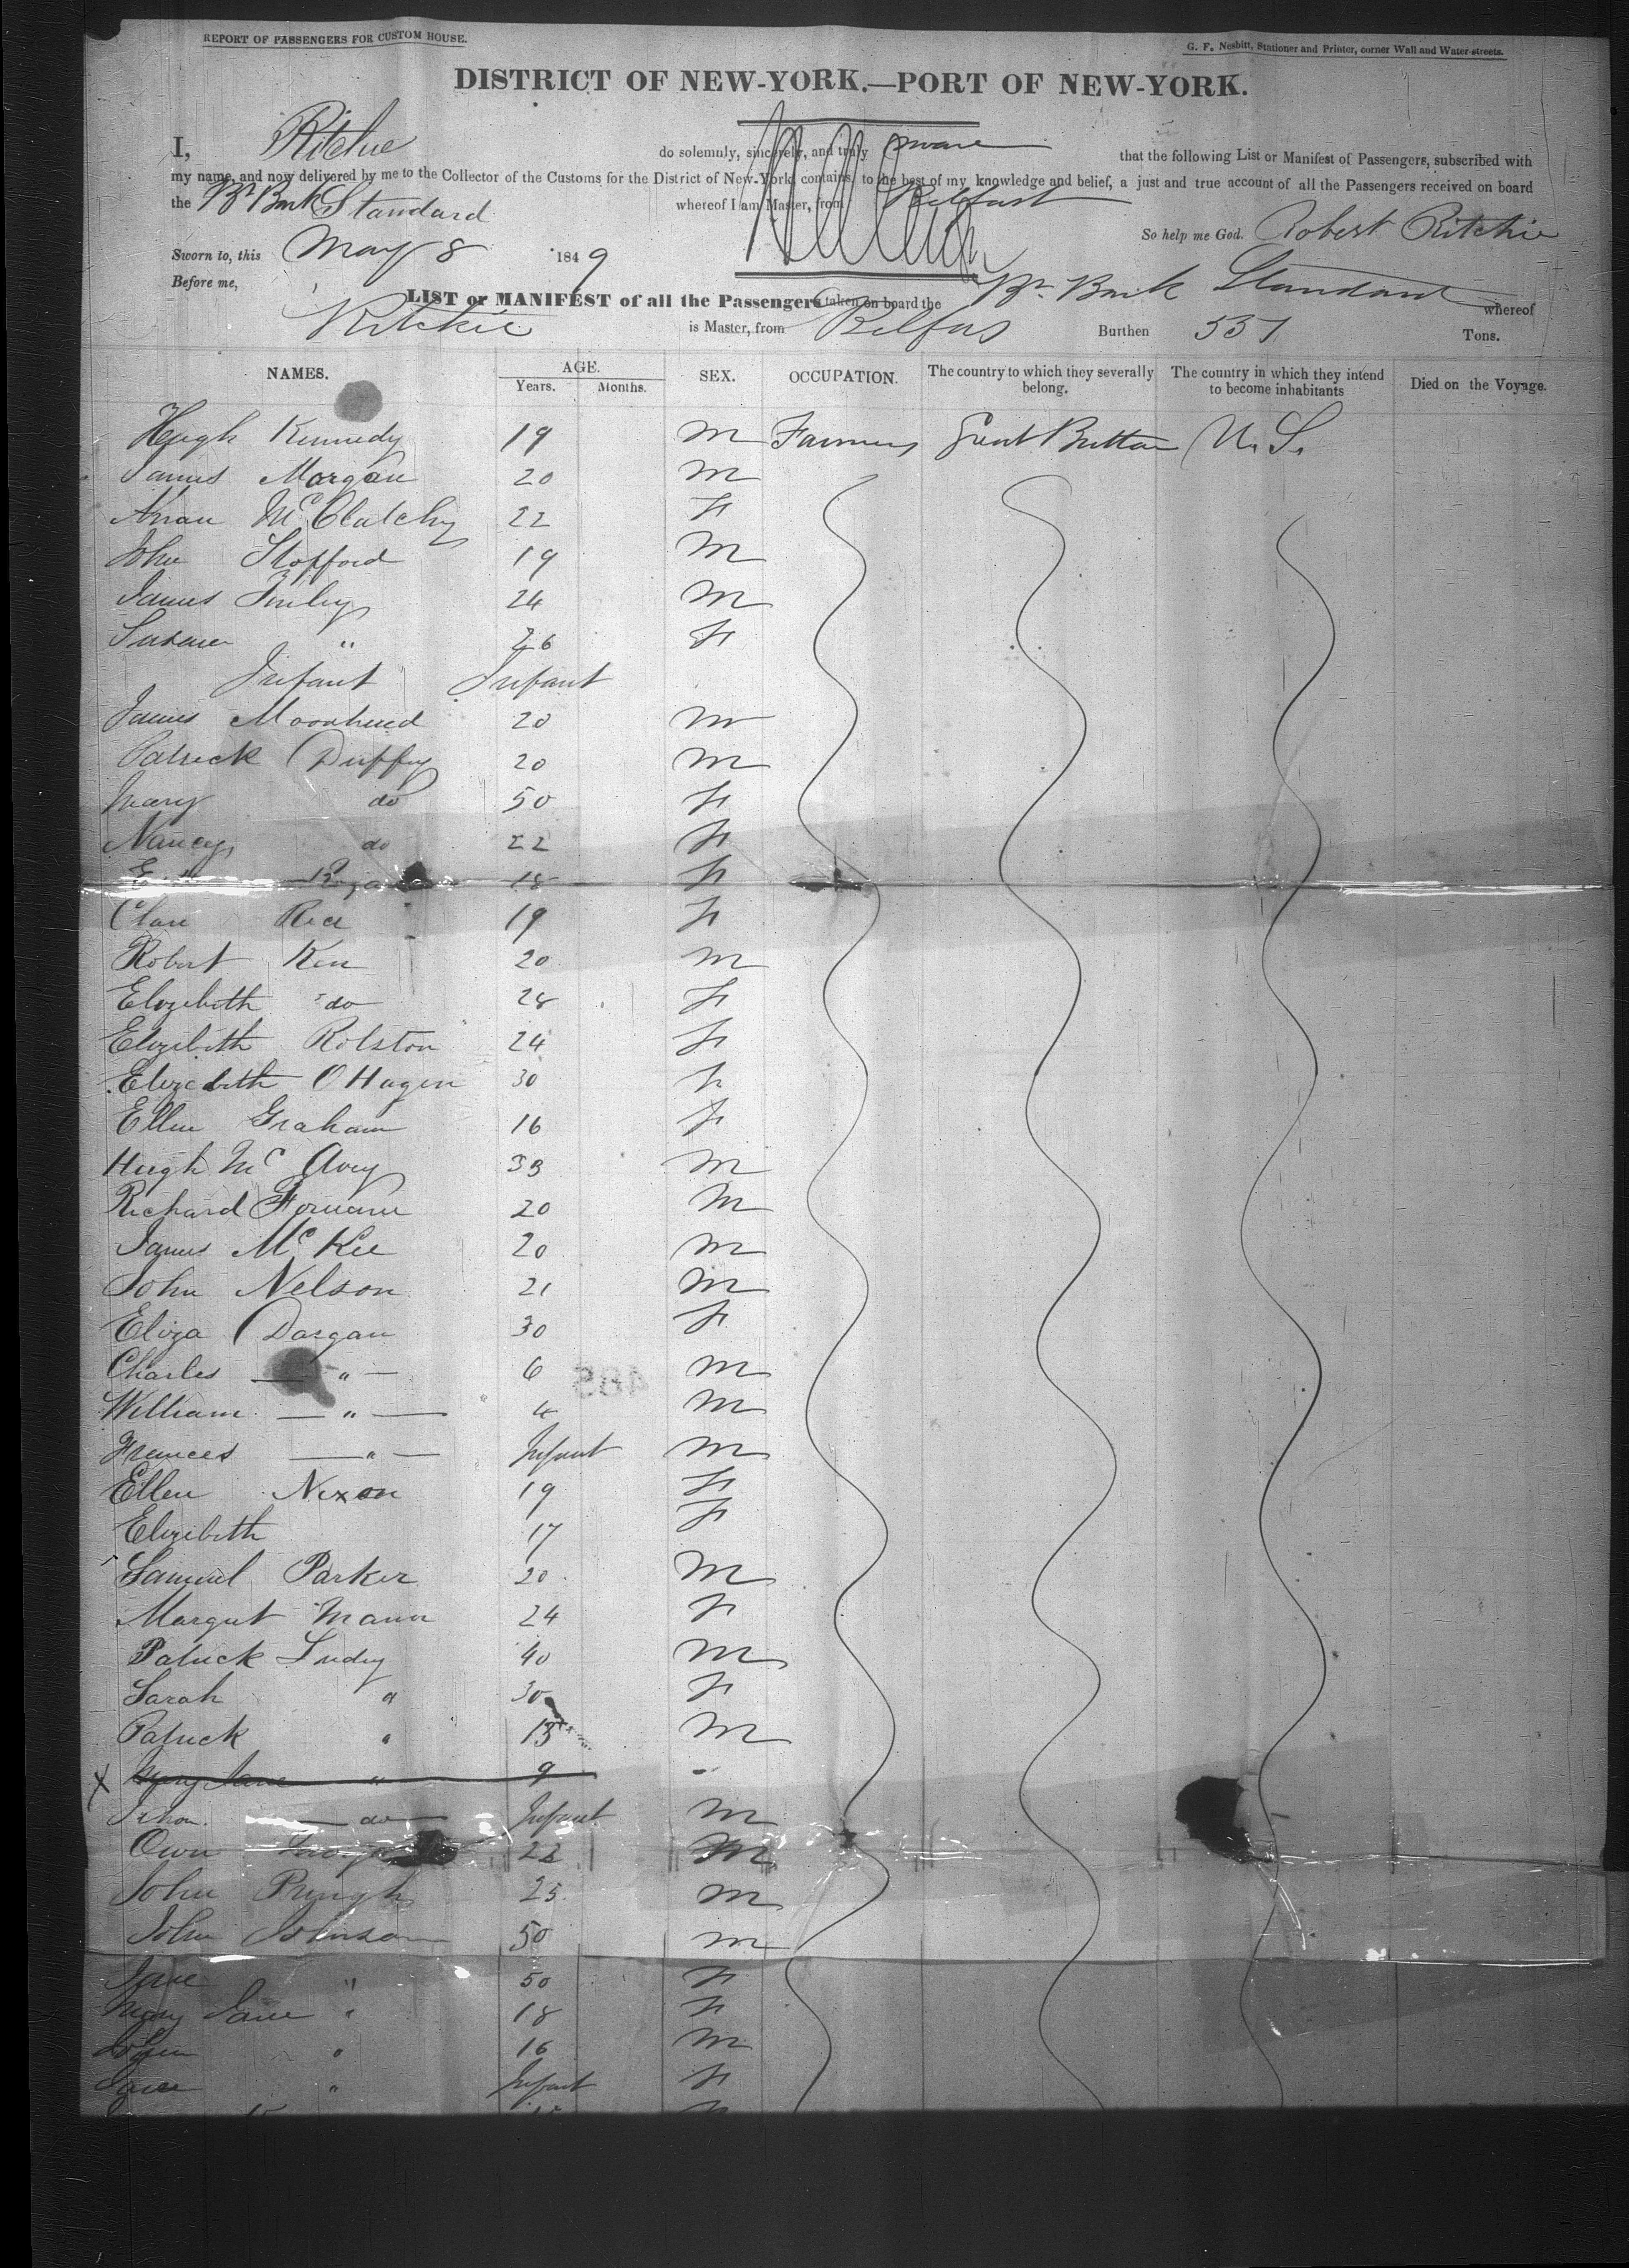 REPORT OF PASSENGERS FOR CUSTOM HOUSE.
G. F. Nesbitt, Stationer and Printer, corner Wall and Water-streets.
DISTRICT OF NEW-YORK.—PORT OF NEW-YORK.
I, Ritchie do solemnly, sincerely, and truly swear that the following List or Manifest of Passengers, subscribed with
my name, and now delivered by me to the Collector of the Customs for the District of New-York, contains, to the best of my knowledge and belief, a just and true account of all the Passengers received on board
the Br Bark Standard whereof I am Master, from Belfast
Sworn to, this May 8 1849 So help me God. Robert Ritchie
Before me,
LIST or MANIFEST of all the Passengers taken on board the Br. Bark Standard whereof
Ritchie is Master, from Belfas Burthen 537 Tons.
NAMES. AGE. Years. Months. SEX. OCCUPATION. The country to which they severally belong. The country in which they intend to become inhabitants Died on the Voyage.
Hugh Kennedy 19 M Farmers Great Brittan U.S.
James Morgan 20 M
McClatchy 22 F
John Stopford 19 M
James 24 M
Susane " 26 F
Infant Infant
James Moorhead 20 M
Patrick Duffy 20 M
Mary do 50 F
Nancy do 22 F
18 F
Clare Rice 19 F
Robert Kerr 20 M
Elizebeth do 28 F
Elizebeth Rolston 24 F
Elizebeth O Hagen 30 F
Ellen Graham 16 F
Hugh Mc Avey 33 M
Richard 20 M
James McKee 20 M
John Nelson 21 M
Eliza Dargan 30 F
Charles — " — 6 M
William — " — 4 M
Frances — " — Infant M
Ellen Nixon 19 F
Elizebeth 17 F
Samuel Parker 20 M
Margret Mann 24 F
Patrick 40 M
Sarah " 30 F
Patrick " 13 M
X Mary Jane " 9 -
— do — Infant M
Owen 22 M
John Pringh 25 M
John Johnson 50 M
Jane " 50 F
Mary Jane " 18 F
John " 16 M
" Infant F